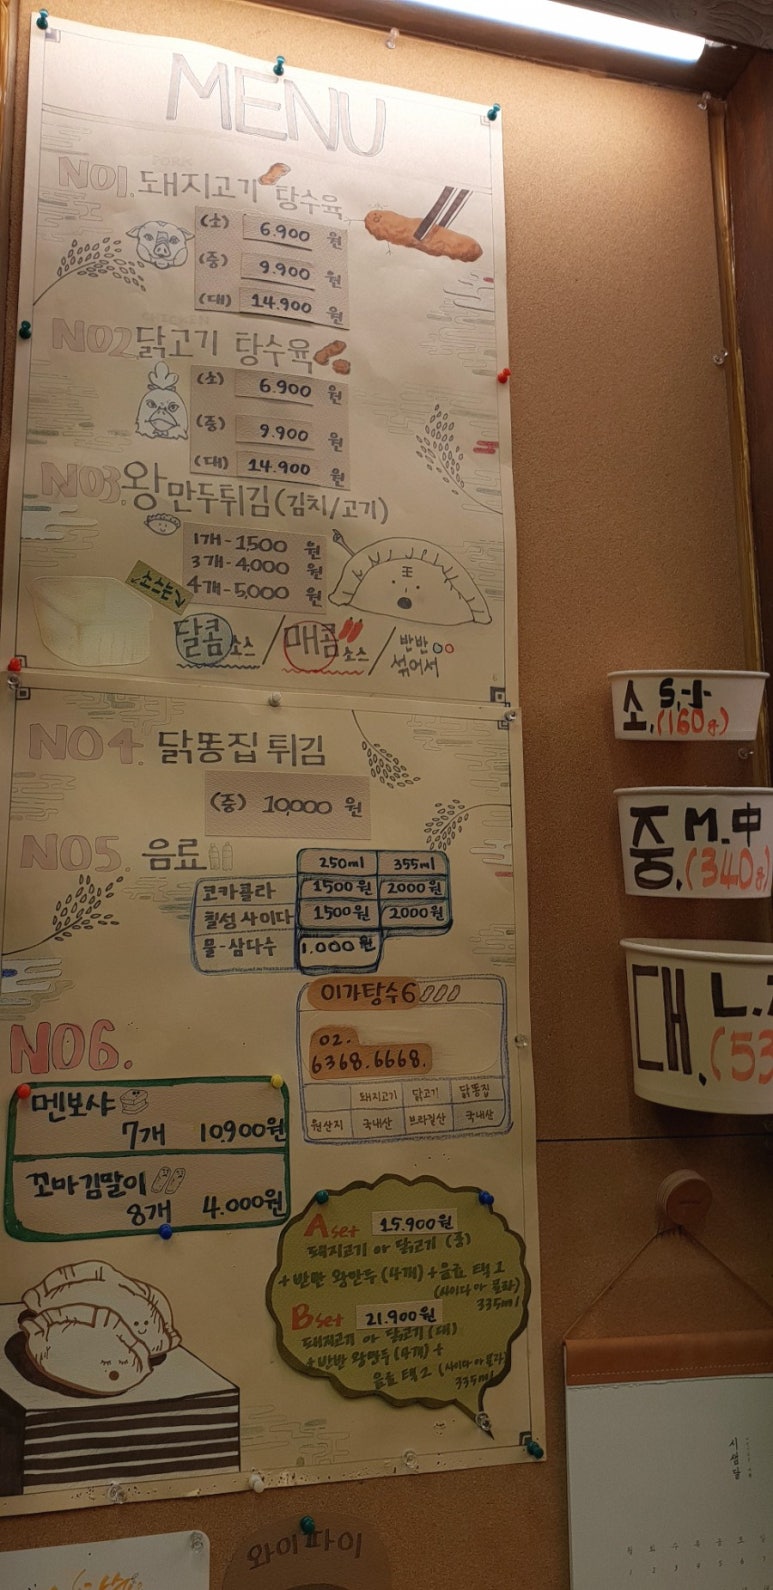 MENU
PORK
NO1. 돼지고기 탕수육
(소) 6.900 원
(중) 9.900 원
(대) 14.900 원
CHICKEN
NO2 닭고기 탕수육
(소) 6.900 원
(중) 9.900 원
(대) 14.900 원
NO3. 왕만두튀김 (김치/고기)
1개-1,500 원
3개-4,000 원
4개-5,000 원
달콤 소스 / 매콤 소스 / 반반 섞어서
NO4. 닭똥집 튀김
(중) 10,000 원
NO5. 음료
250ml 355ml
코카콜라 1500원 2000원
칠성사이다 1500원 2000원
물-삼다수 1.000원
이가탕수6
02.
6368.6668.
돼지고기 닭고기 닭똥집
원산지 국내산 브라질산 국내산
NO6.
멘보샤
7개 10.900원
꼬마김말이
8개 4.000원
A set 15.900원
돼지고기 or 닭고기 (중)
+반반 왕만두 (4개) + 음료 택 1
(사이다 or 콜라)
335ml
B set 21.900원
돼지고기 or 닭고기 (대)
+반반 왕만두 (4개) +
음료 택 2 (사이다 or 콜라)
335ml
소. S.小
(160g)
중. M.中
(340g)
대. L.
(53
와이파이
월 화 수 목 금 토 일
1 2 3 4 5 6 7